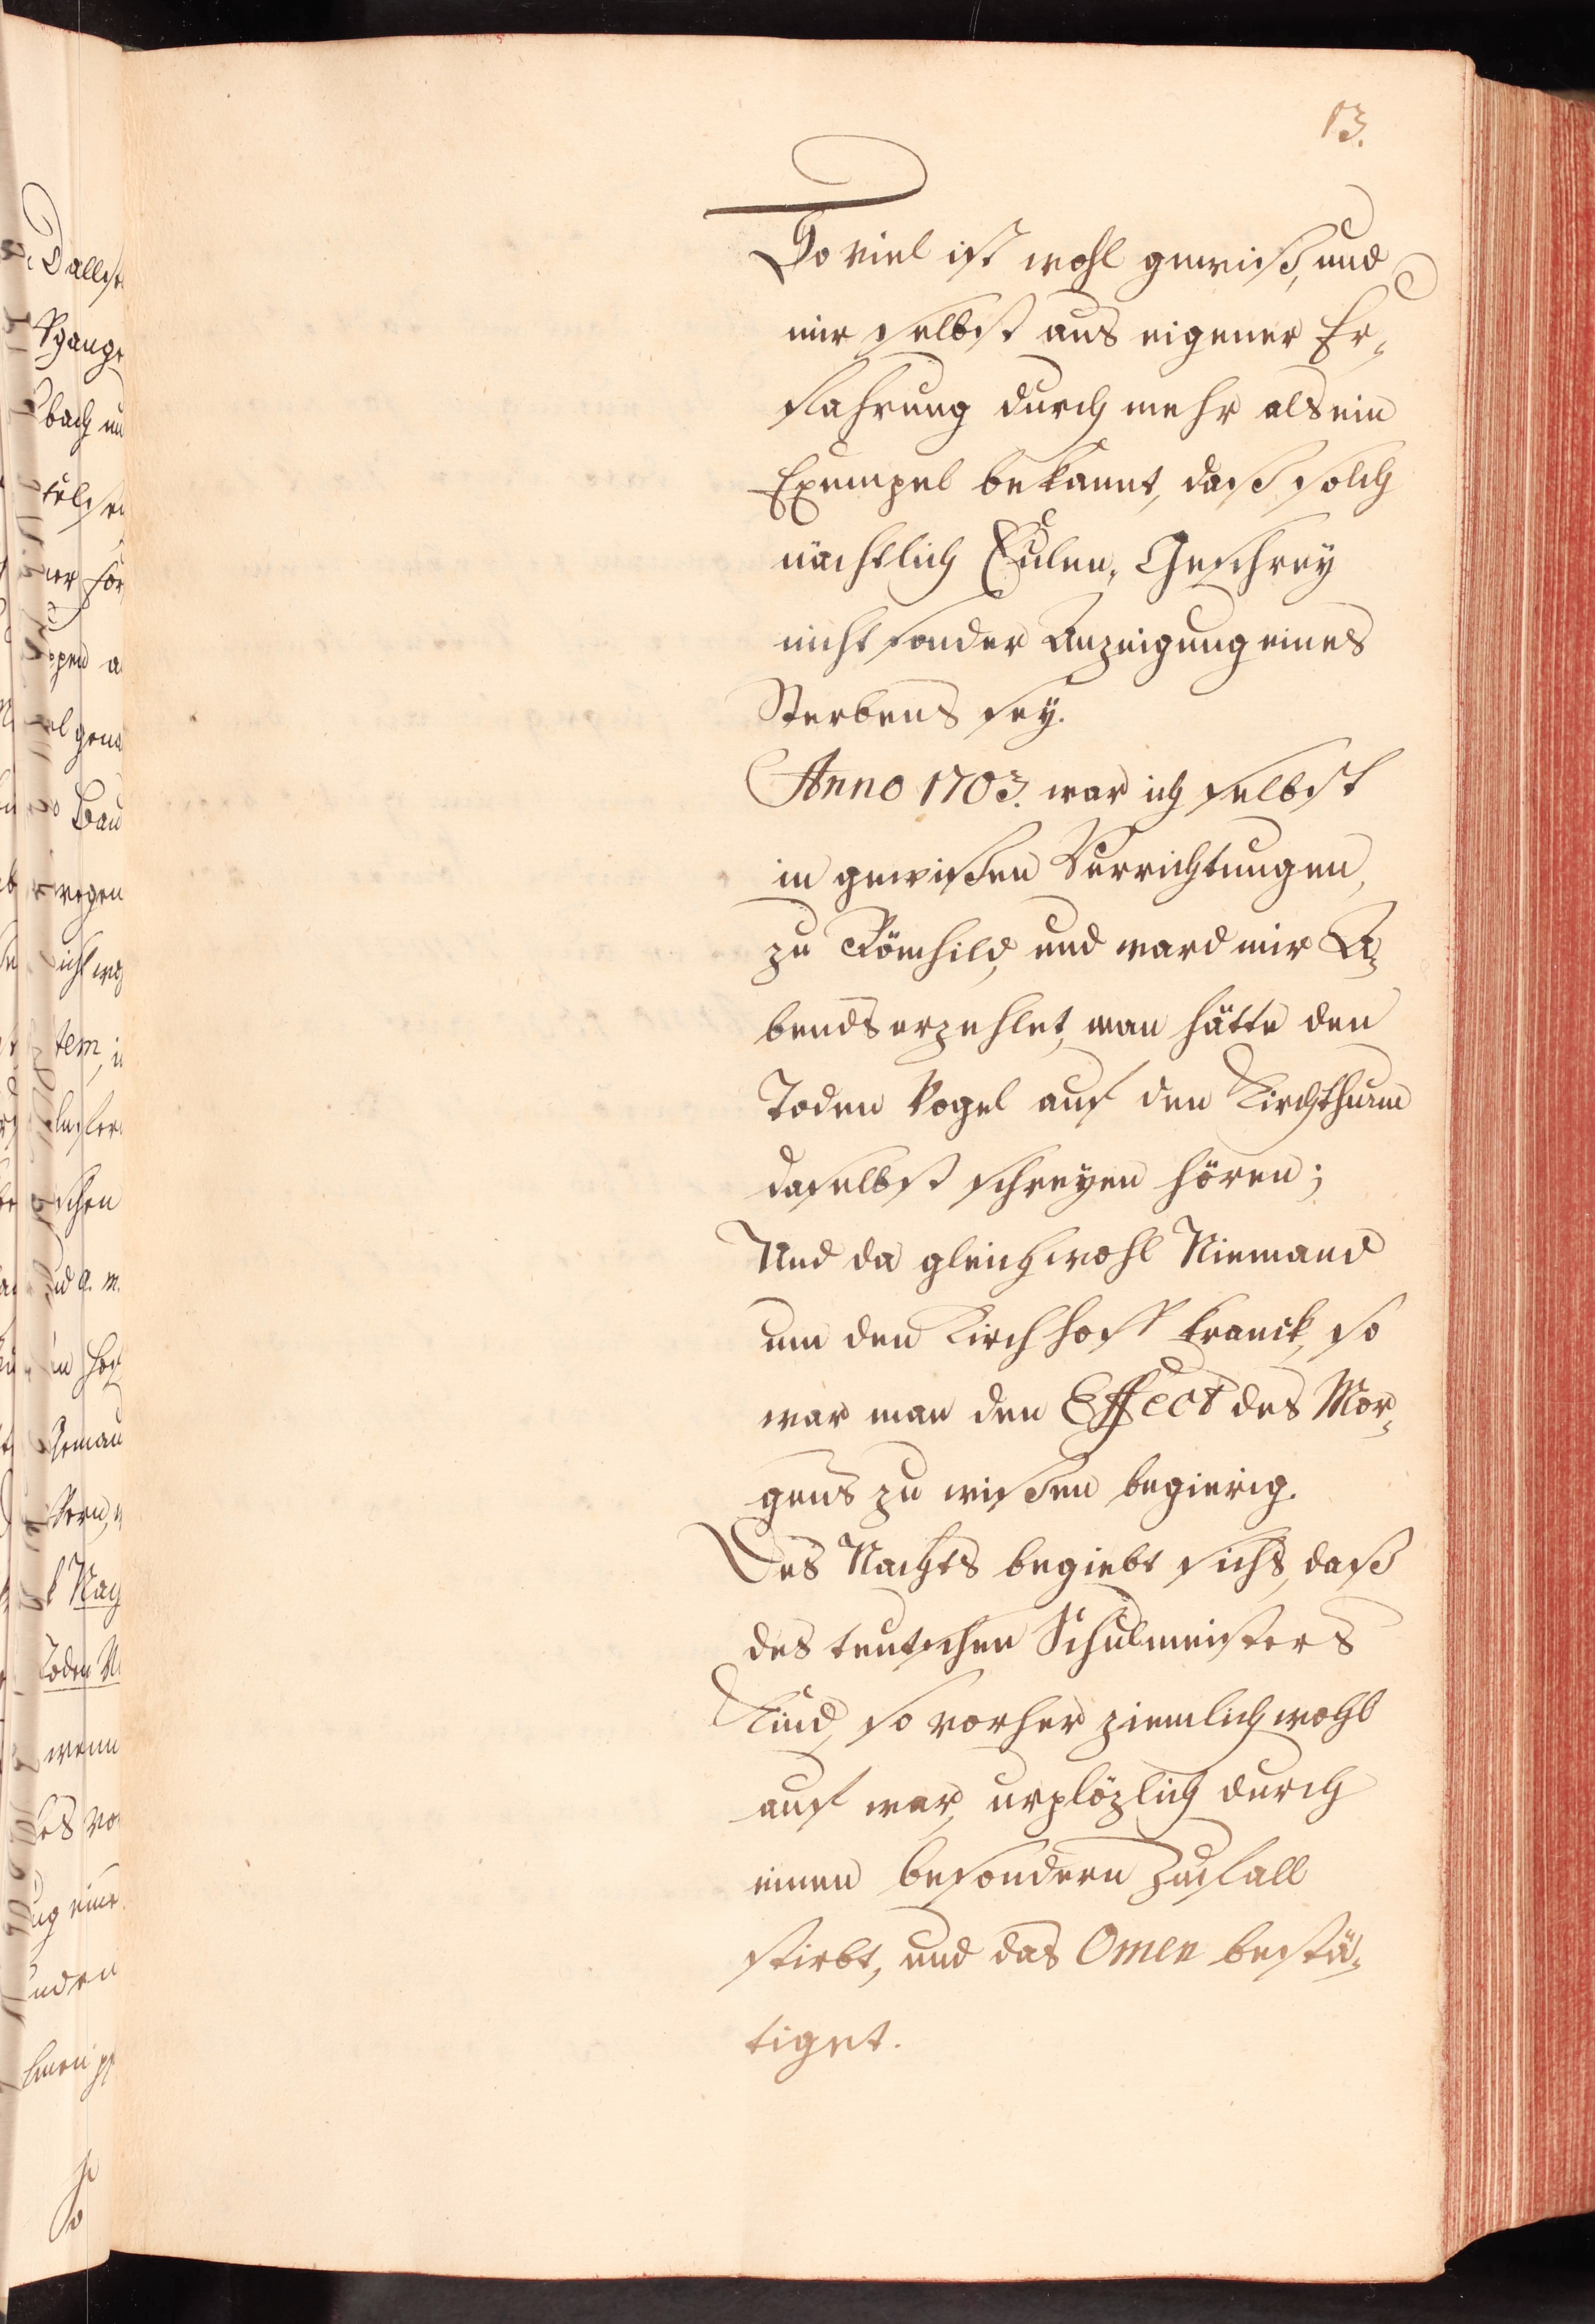 13.
So viel ist wohl gewiß, und
mir selbst aus eigener Er„
fahrung durch mehr als ein
Exempel bekannt, daß solch
nächtlich Eulen„Geschrey
nicht sonder Anzeigung eines
Sterbens sey.
Anno 1703. war ich selbst
in gewißen Verrichtungen,
zu Römhild, und ward mir A„
bends erzehlet, man hätte den
Toden Vogel auf den Kirchthurm
daselbst schreyen hören;
Und da gleichwohl Niemand
um den Kirchhoff kranck, so
war man den Effect des Mor„
gens zu wißen begierig.
Des Nachts begiebt sichs, daß
des teutschen Schulmeisters
Kind, so vorher ziemlich wohl
auf war, urplözlich durch
einen besondern Zufall
stirbt, und das Omen bestä„
tiget.